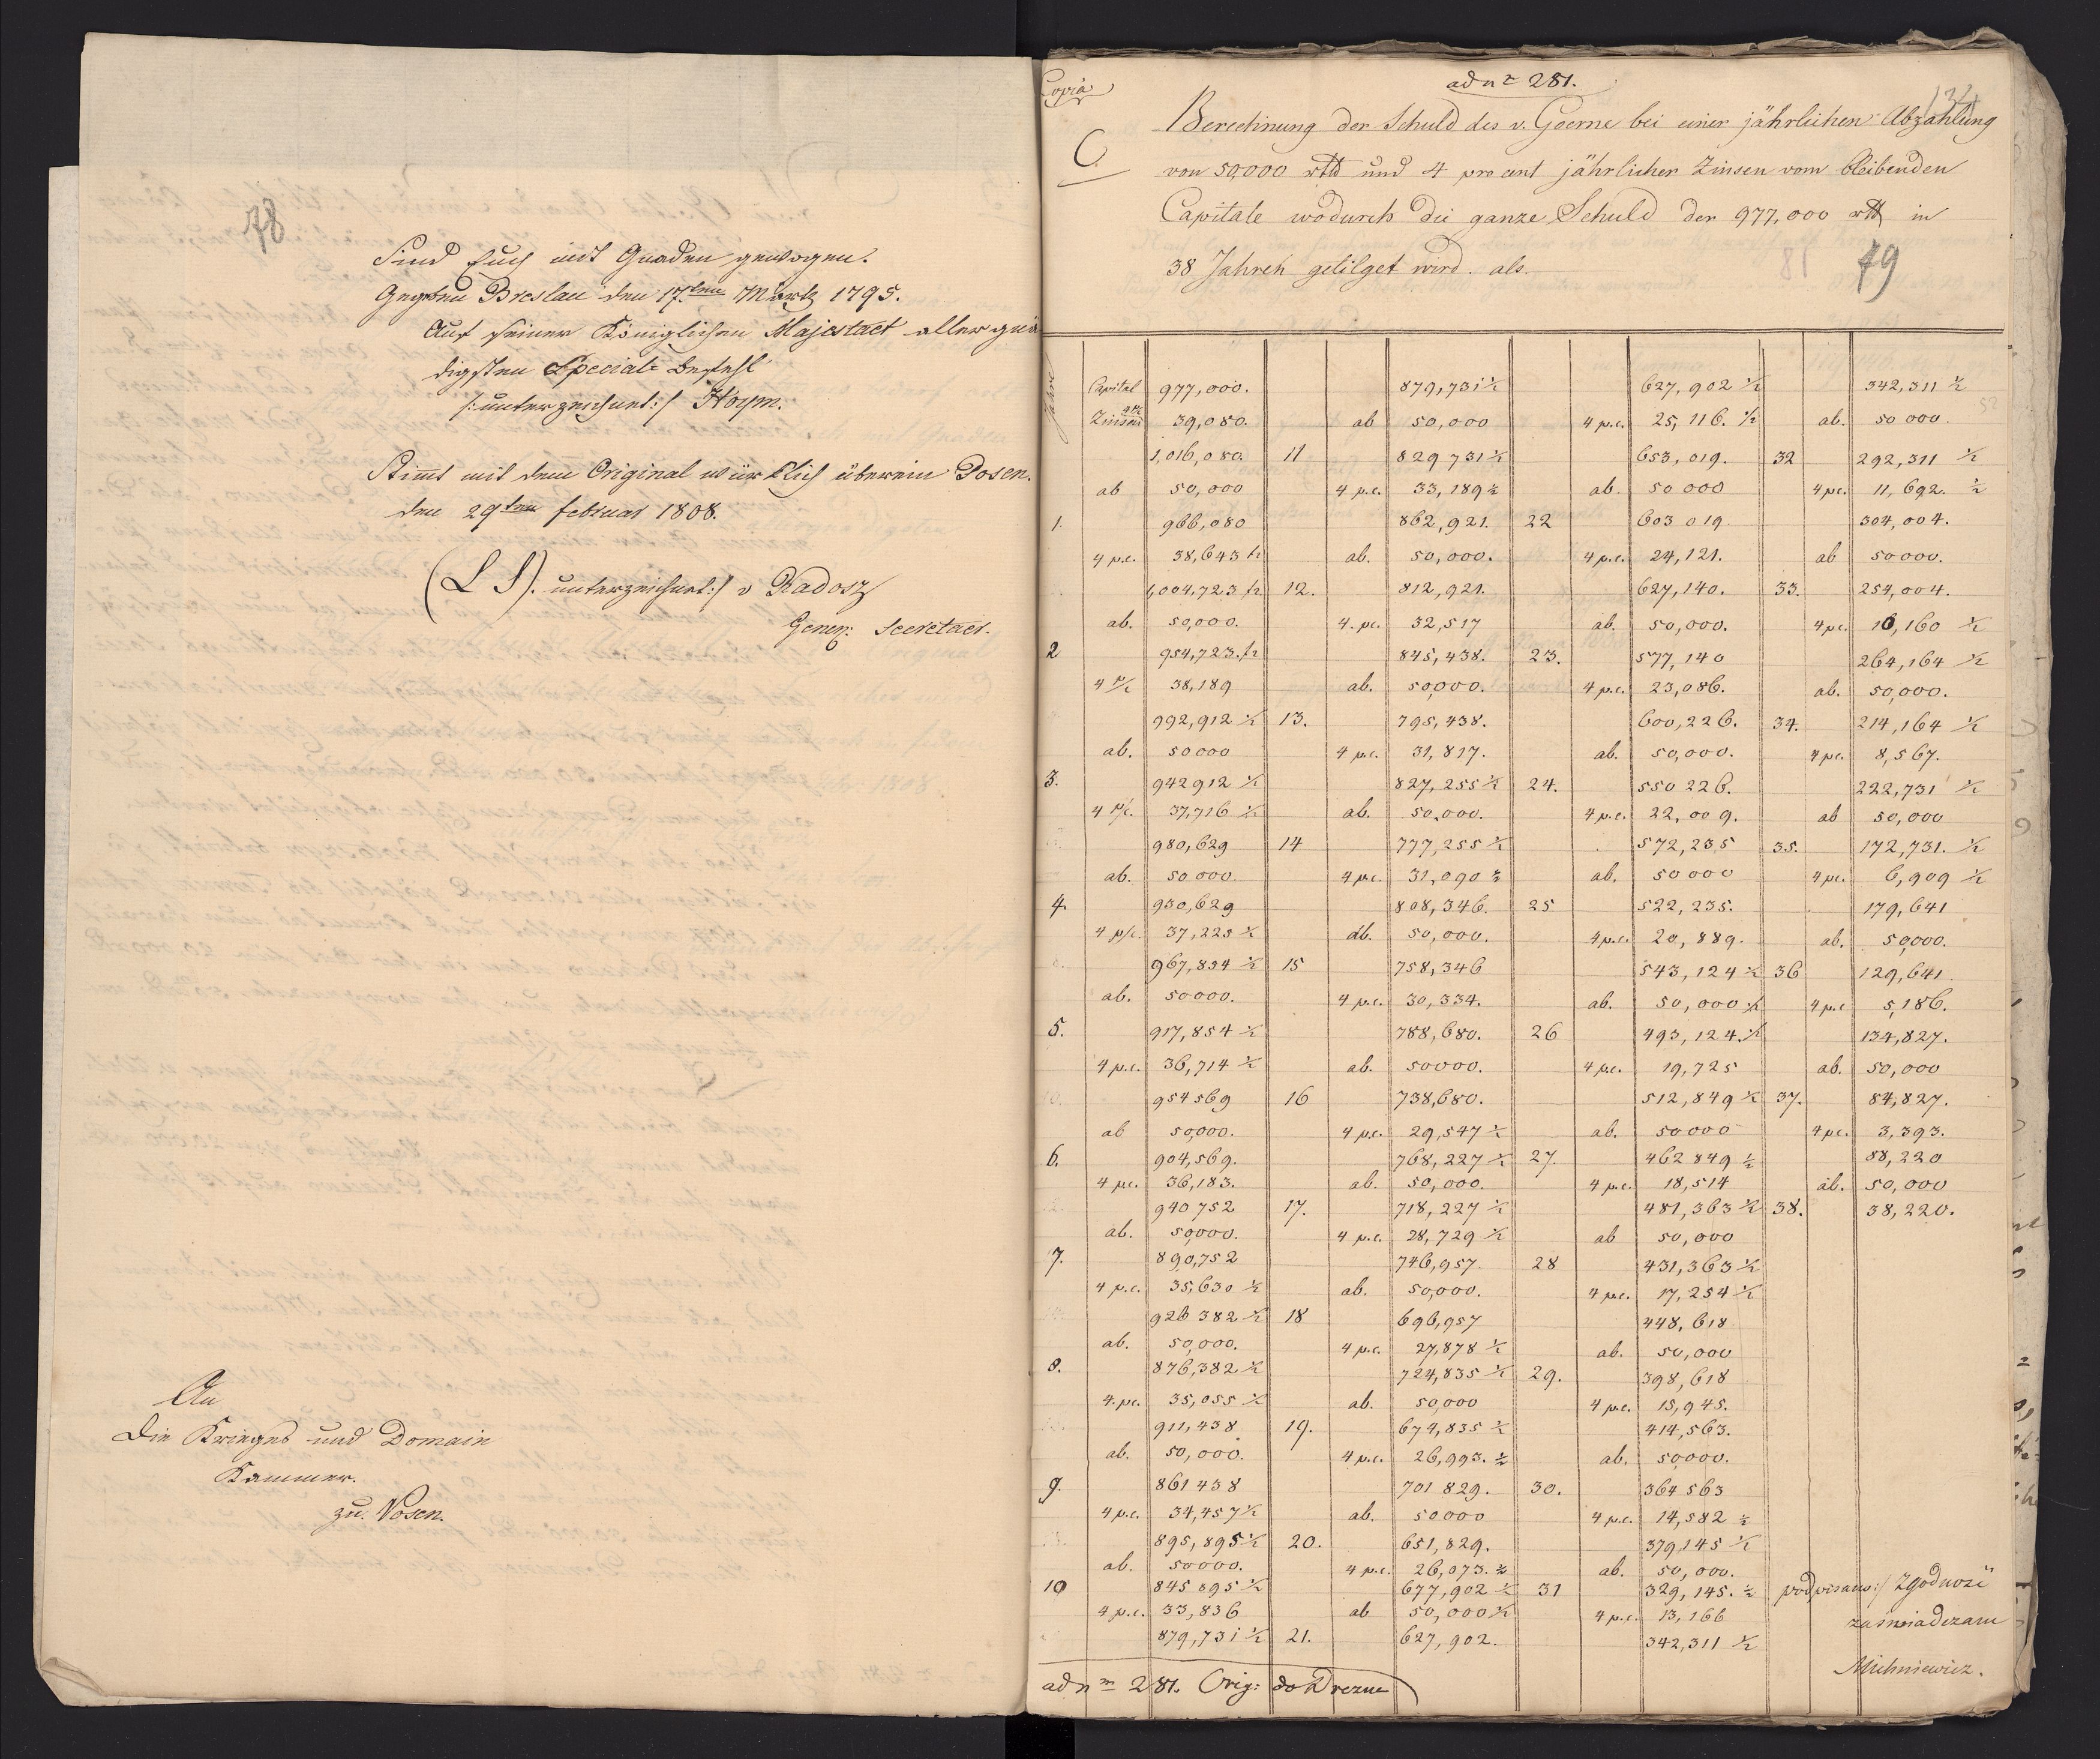 78
Sind Euch mit Gnaden gewogen.
Gegeben Breslau den 17.ten Martz 1795.
Auf Seiner Königlichen Majestaet allergnä
digsten Special Befehl
/:unterzeichnet:/ Hoym.
Stimt mit dem Original würklich überein Posen.
den 29ten Februar 1808.
(L S). unterzeichnet:/ v Radosz
Gener: Secretaer.
An
Die Krieges und Domain
Kammer.
zu Posen.
Copia
ad nr 281.
134
C.
Berechnung der Schuld des v. Goerne bei einer jährlichen Abzahlung
von 50,000 rtl und 4 pro cent jährlicher Zinsen vom bleibenden
Capitale wodurch die ganze Schuld der 977,000 rtl in
38 Jahren getilget wird. als.
81 79
Jahre
Capital 977,000.
Zinsen 39,080.
1,016,080.
ab 50,000
1. 966,080
4 p.c. 38,643 ½
1,004,723 ½
ab. 50,000.
2 954,723. ½
4 p/c 38,189
992,912 ½
ab. 50000
3. 942912 ½
4 p/c. 37,716 ½
980,629
ab. 50000.
4. 930,629
4 p/c. 37,225 ½
967,854 ½
ab. 50000.
5. 917,854 ½
4 p.c. 36,714 ½
954569
ab 50,000.
6. 904,569.
4 p.c. 36,183.
940752
ab. 50,000.
7. 890,752
4 p.c. 35,630 ½
926382 ½
ab. 50,000.
8. 876,382 ½
4. p.c. 35,055 ½
911,438
ab. 50,000.
9. 861438
4 p.c. 34,457 ½
895,895 ½
ab. 50000.
10 845895 ½
4 p.c. 33,836
879,731 ½
879,731 ½
ab 50,000
11 829731 ½
4 p.c. 33,189 ½
862,921.
ab. 50,000.
12. 812,921.
4. p.c. 32,517
845,438.
ab. 50,000.
13. 795,438.
4 p.c. 31,817.
827,255 ½
ab. 50,000.
14 777,255 ½
4 p.c. 31,090 ½
808,346.
ab. 50,000.
15 758,346
4 p.c. 30,334.
788,680.
ab. 50000.
16 738,680.
4 p.c. 29,547 ½
768,227 ½
ab. 50,000.
17. 718,227 ½
4 p.c. 28,729 ½
746,957.
ab. 50,000.
18 696,957
4 p.c. 27,878 ½
724,835 ½
ab. 50,000
19. 674,835 ½
4 p.c. 26,993. ½
701829.
ab. 50000
20. 651,829.
4 p.c. 26,073. ½
677,902 ½
ab 50,000 ½
21. 627,902.
627,902 ½
4 p.c. 25,116. ½
653,019.
ab. 50000
22 603019.
4 p.c. 24,121.
627,140.
ab. 50,000.
23. 577,140
4 p.c. 23,086.
600,226.
ab. 50,000.
24. 550226.
4 p.c. 22,009.
572,235
ab. 50000
25 522,235.
4 p.c. 20,889.
543,124 ½
ab. 50,000 ½
26 493,124. ½
4 p.c. 19,725
512,849 ½
ab. 50000
27. 462849 ½
4 p.c. 18,514
481,363 ½
ab 50,000
28 431,363 ½
4 p.c. 17,254 ½
448,618
ab. 50,000
29. 398,618
4 p.c. 15,945.
414,563.
ab. 50,000.
30. 364563
4 p.c. 14,582 ½
379,145 ½
ab. 50,000.
31 329,145. ½
4 p.c. 13,166
342,311 ½
342,311 ½
ab. 50000.
32 292,311 ½
4 p.c. 11,692. ½
304,004.
ab 50000.
33. 254,004.
4 p.c. 10,160 ½
264,164 ½
ab. 50,000.
34. 214,164 ½
4 p.c. 8,567.
222,731 ½
ab 50,000
35. 172,731. ½
4 p.c. 6,909 ½
179,641
ab. 50,000.
36 129,641
4 p.c 5,186.
134,827.
ab. 50,000
37. 84,827.
4 p.c. 3,393.
88,220
ab. 50,000
38. 38,220.
podpisano:/ Zgodność
zaświadczam
Michniewicz.
ad nm 281. Orig: do Drezna